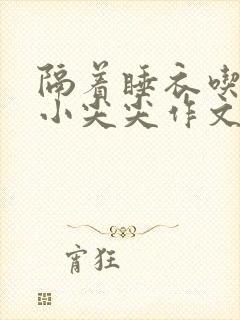 隔着睡衣喫
小尖尖作文
宵狂